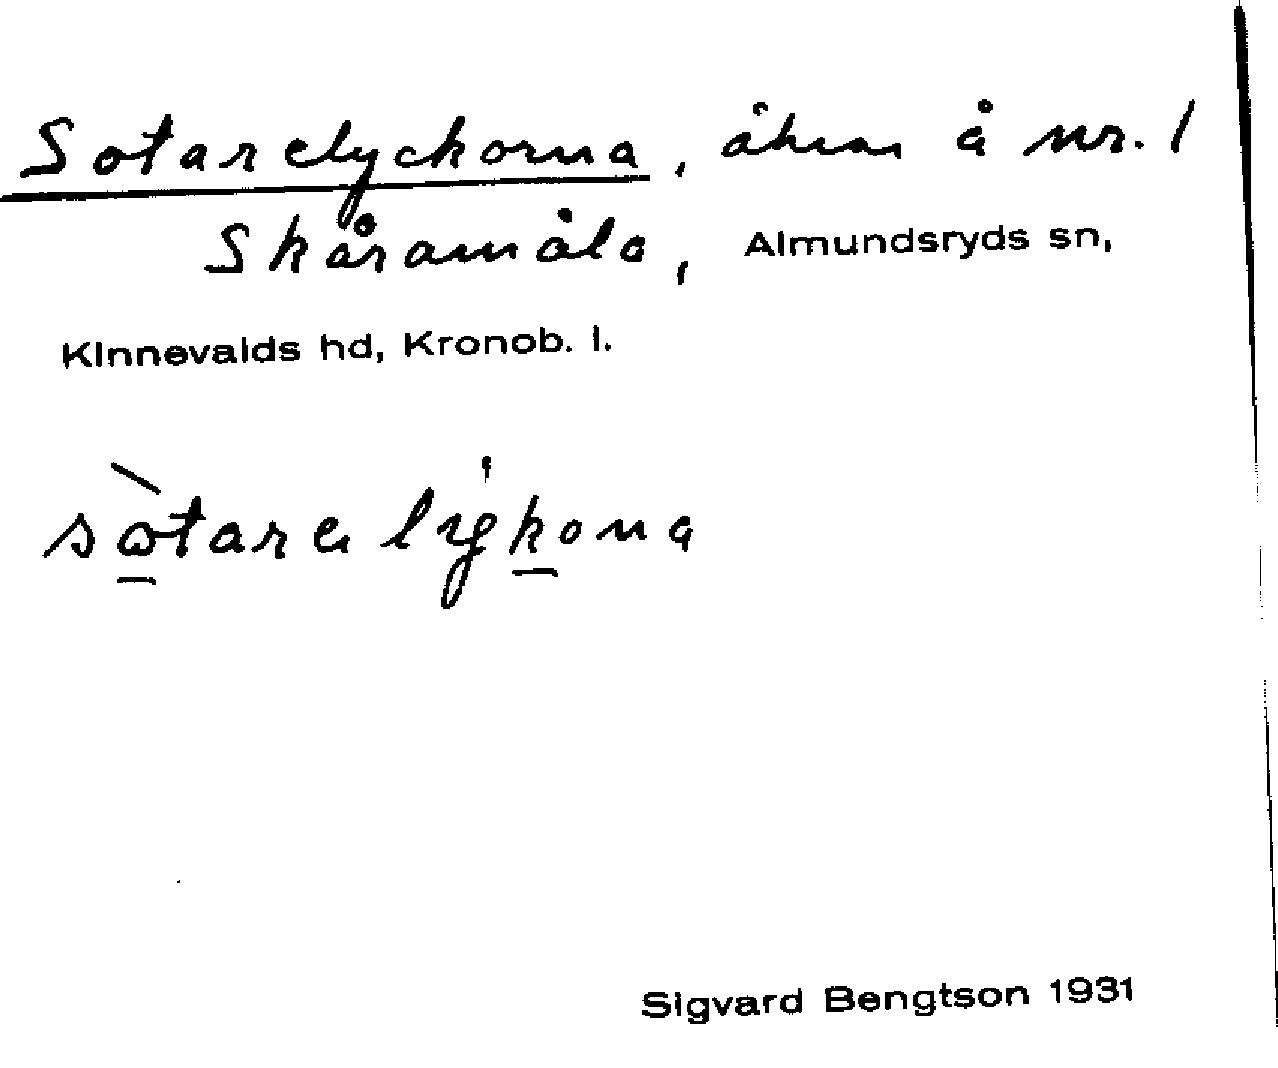 Sotarelyckorna, åkrar å nr. 1
Skåramåla, Almundsryds sn,
Kinnevalds hd, Kronob. l.
Sigvard Bengtson 1931